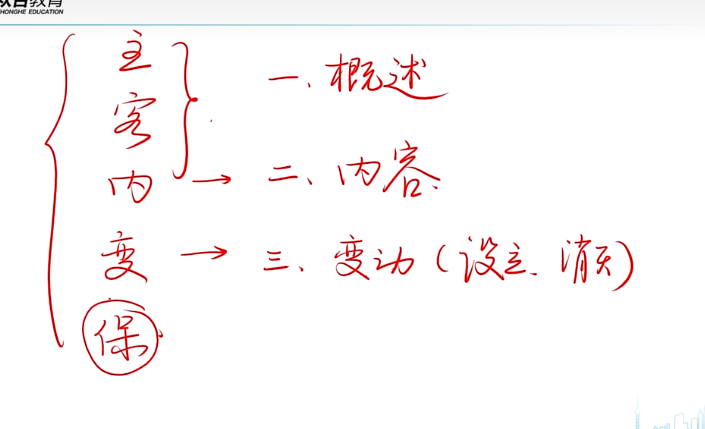 众合教育
ZHONGHE EDUCATION
主
客
内
变
保
一、概述
→ 二、内容
→ 三、变动（设立、消灭）